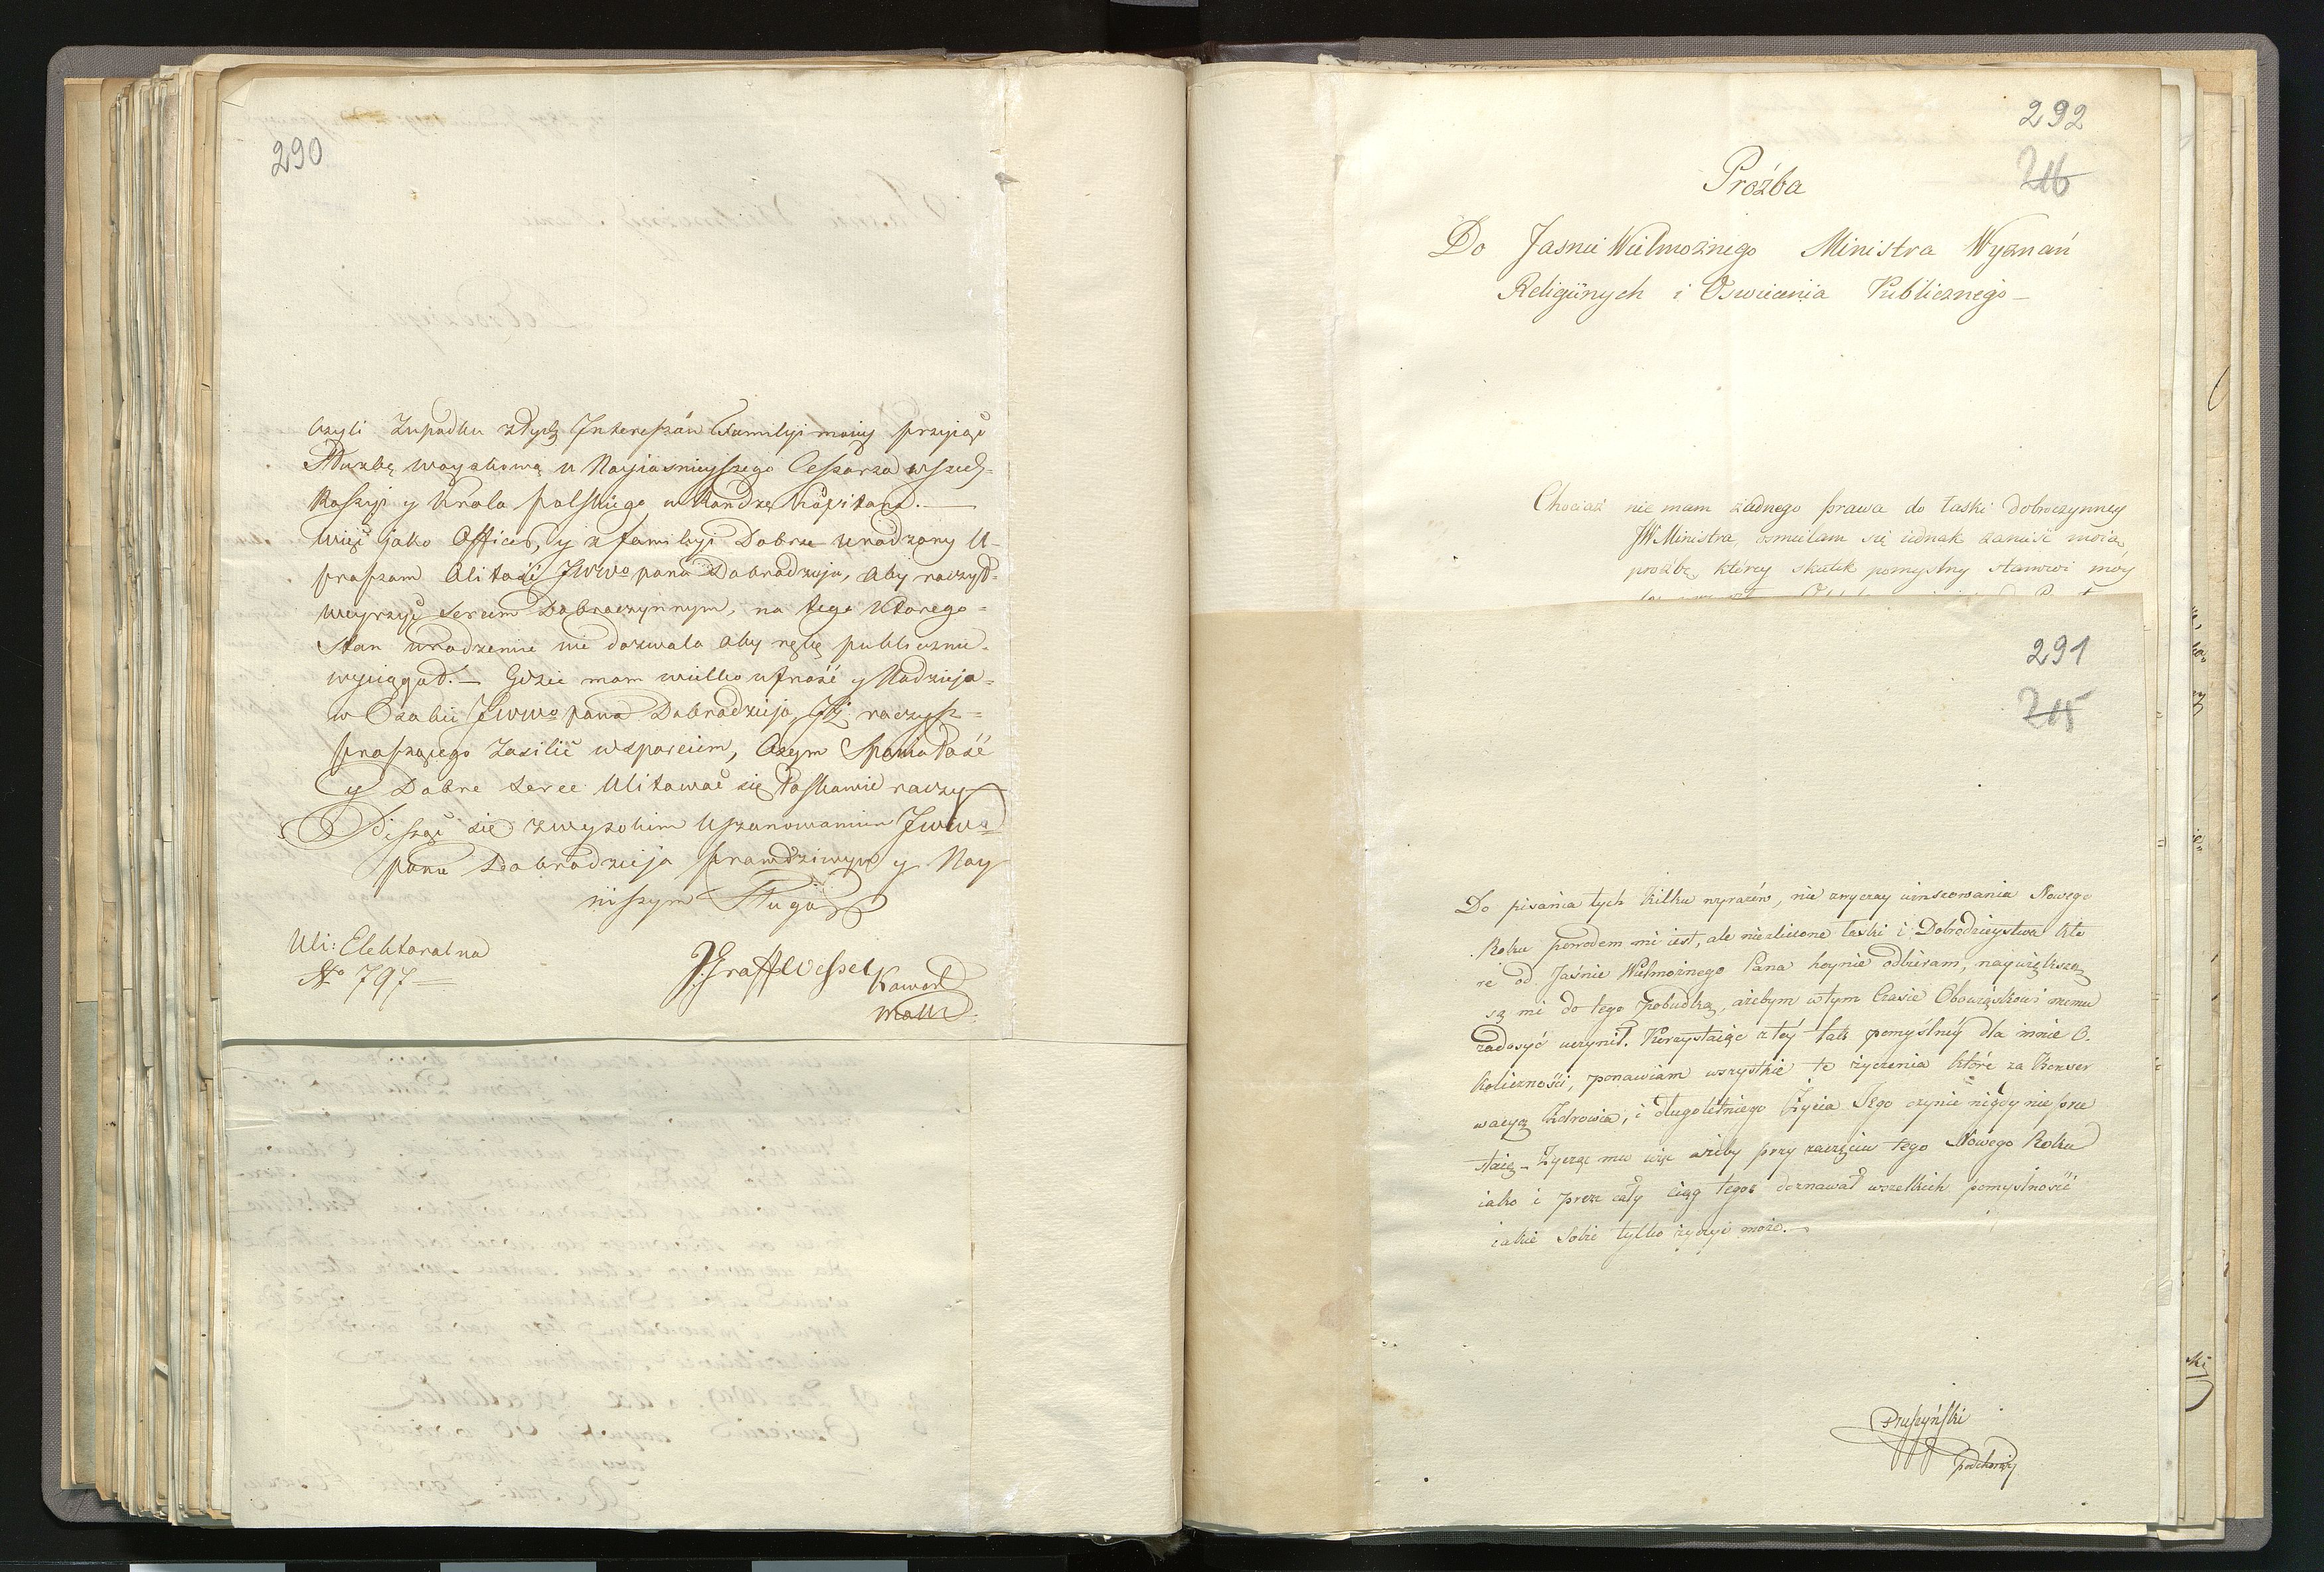 290
czyli Zupadku złych Interessów Familyi moiey przyjąć
Służbę woyskową u Nayiasnieyszego Cesarza wszech
Rossyi y Króla polskiego w Randze Kapitana. —
więc jako Officer, y z familyi Dobrze urodzony u-
praszam Litość JWWo pana Dobrodzieja, aby raczył
weyrzyć sercem Dobroczynnym, na tego którego
stan urodzenie nie dozwala aby rękę publicznie
wyciągał. — Gdzie mam wielko ufność y Nadzieja
w Osobie JWWo pana Dobrodzieja, Iż raczysz
praszącego zasilić wsparciem, Czym Spaniałość
y Dobre serce Ulitować się łaskawie raczy
Pisząc się z wysokim Uszanowaniem JWWo
pana Dobrodzieja prawdziwym y Nay
niższym Sługą
Uli: Elektoralna
No 797
Graff Wessel
292
216
Proźba
Do Jasnie Wielmożnego Ministra Wyznań
Religiinych i Oswiecenia Publicznego —
Chociaż nie mam żadnego prawa do łaski dobroczynney
JW Ministra, osmielam się iednak zanieść moią
prozbę, którey skutek pomyslny stanowi móy
291
215
Do pisania tych kilku wyrazów, nie zwyczay winszowania Nowego
Roku powodem mi iest, ale niezliczone łaski i Dobrodzieystwa któ
re od Jaśnie Wielmożnego Pana hoynie odbieram, naywiększą
są mi do tego pobudką, ażebym w tym Czasie Obowiąskowi memu
zadosyć uczynił. Korzystaiąc z téy tak pomyślnéy dla mnie O.
koliczności, ponawiam wszystkie te życzenia które za Konser
wacyą Zdrowia, i długoletniego Życia Jego czynić nigdy nie prze
staię — Życzę mu więc ażeby przy zaczęciu tego Nowego Roku
iako i przez cały ciąg tegoż doznawał wszelkich pomyslność
iakie Sobie tylko życzyć może. —
Pruszyński
podchorąży